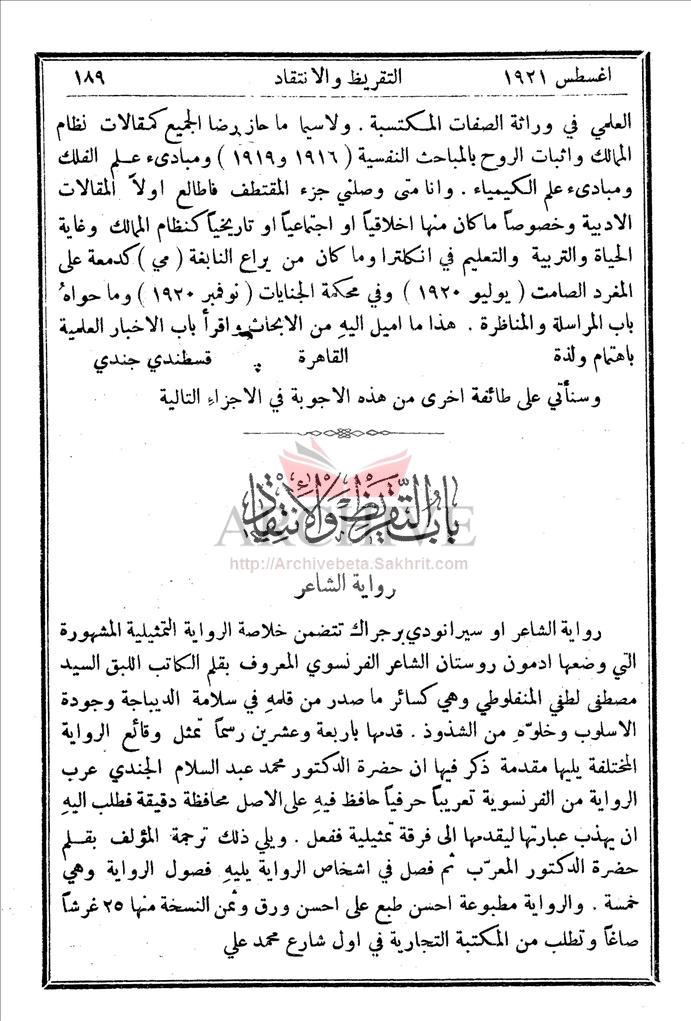 اغسطس ١٩٢١ التقريظ والانتقاد ١٨٩
العلمي في وراثة الصفات المكتسبة . ولاسيما ما حاز برضا الجميع كمقالات نظام
الممالك واثبات الروح بالمباحث النفسية ( ١٩١٦ و ١٩١٩ ) ومبادىء علم الفلك
ومبادىء علم الكيمياء . وانا متى وصلني جزء المقتطف فاطالع اولاً المقالات
الادبية وخصوصاً ما كان منها اخلاقياً او اجتماعياً او تاريخياً كنظام الممالك وغاية
الحياة والتربية والتعليم في انكلترا وما كان من يراع النابغة ( مي ) كدمعة على
المفرد الصامت ( يوليو ١٩٢٠ ) وفي محكمة الجنايات ( نوفمبر ١٩٢٠ ) وما حواهُ
باب المراسلة والمناظرة . هذا ما اميل اليهِ من الابحاث واقرأ باب الاخبار العلمية
باهتمام ولذة القاهرة قسطندي جندي
وسنأتي على طائفة اخرى من هذه الاجوبة في الاجزاءِ التالية
باب التقريظ والانتقاد
ARCHIVE
http://Archivebeta.Sakhrit.com
رواية الشاعر
رواية الشاعر او سيرانودي برجراك تتضمن خلاصة الرواية التمثيلية المشهورة
التي وضعها ادمون روستان الشاعر الفرنسوي المعروف بقلم الكاتب اللبق السيد
مصطفى لطفي المنفلوطي وهي كسائر ما صدر من قلمهِ في سلامة الديباجة وجودة
الاسلوب وخلوّهِ من الشذوذ . قدمها باربعة وعشرين رسماً تمثل وقائع الرواية
المختلفة يليها مقدمة ذكر فيها ان حضرة الدكتور محمد عبد السلام الجندي عرب
الرواية من الفرنسوية تعريباً حرفياً حافظ فيهِ على الاصل محافظة دقيقة فطلب اليهِ
ان يهذب عبارتها ليقدمها الى فرقة تمثيلية ففعل . ويلي ذلك ترجمة المؤلف بقلم
حضرة الدكتور المعرّب ثم فصل في اشخاص الرواية يليهِ فصول الرواية وهي
خمسة . والرواية مطبوعة احسن طبع على احسن ورق وثمن النسخة منها ٢٥ غرشاً
صاغاً وتطلب من المكتبة التجارية في اول شارع محمد علي